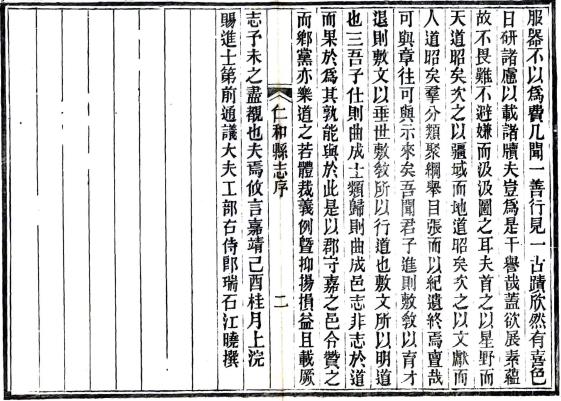 服器不以為費几聞一善行見一古蹟欣然有喜色
日研諸慮以載諸牘夫豈為是干譽哉蓋欲展素蘊
故不畏難不避嫌而汲汲圖之耳夫首之以星野而
天道昭矣次之以疆域而地道昭矣次之以文獻而
人道昭矣羣分類聚綱舉目張而以紀遺終焉亶哉
可與章往可與示來矣吾聞君子進則敷教以育才
退則敷文以垂世敷教所以行道也敷文所以明道
也三吾子仕則曲成士類歸則曲成邑志非志於道
而果於為其孰能與於此是以郡守嘉之邑令贊之
而鄉黨亦樂道之若體裁義例暨抑揚損益且載厥
仁和縣志序
二
志予未之盡覩也夫焉攸言嘉靖己酉桂月上浣
賜進士第前通議大夫工部右侍郎瑞石江曉撰